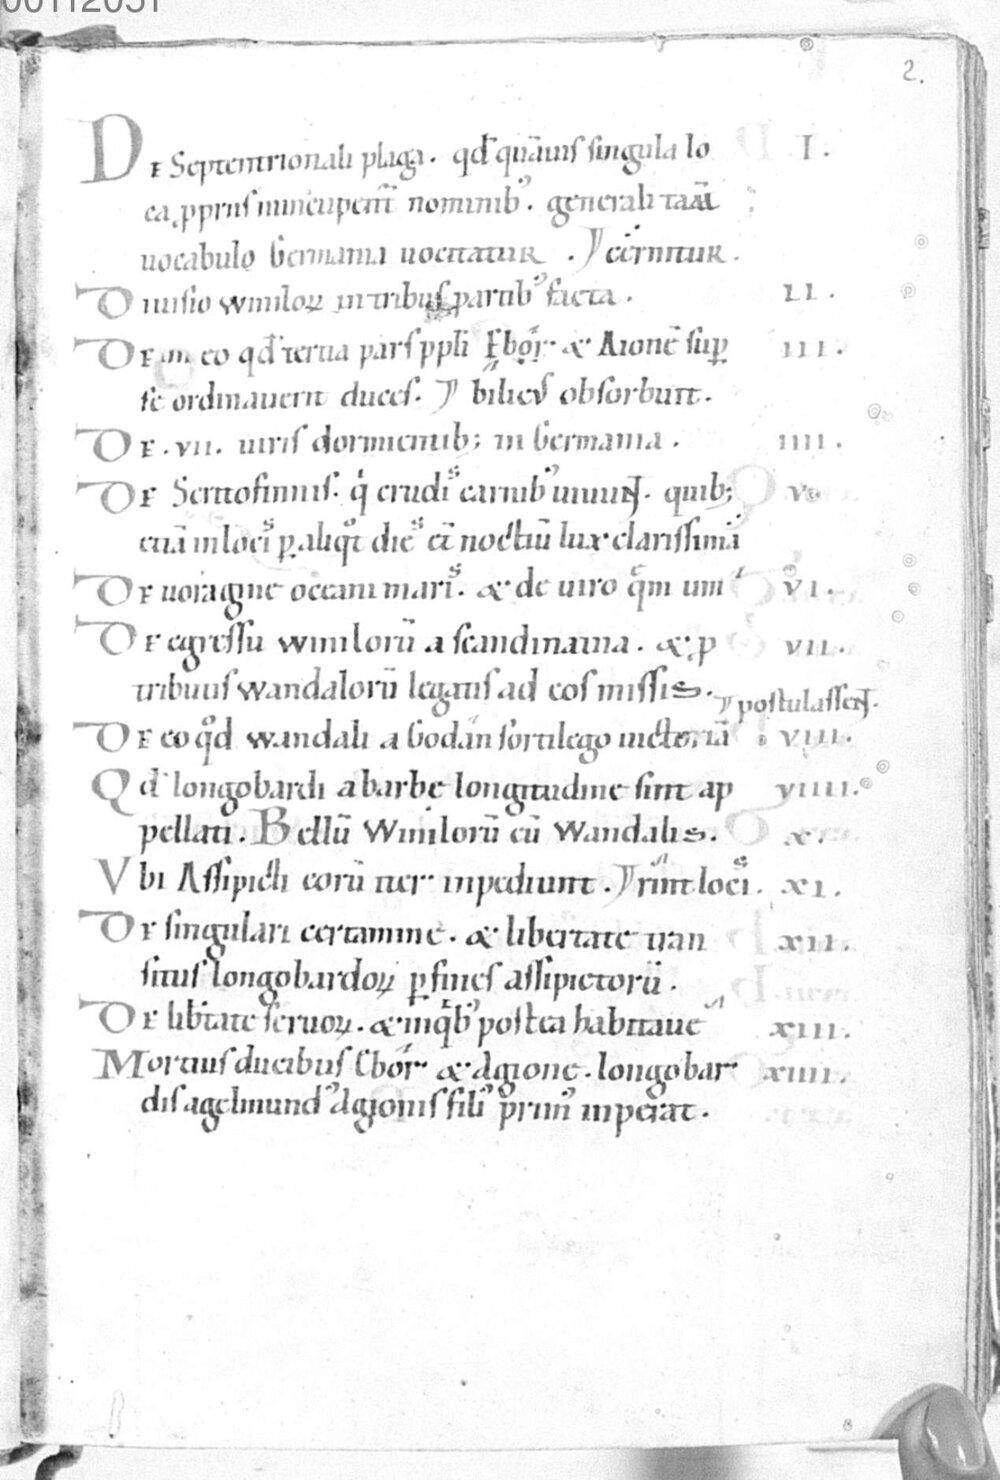 00112051
2.
De Septentrionali plaga. qđ quāuis singula lo I.
ca ꝓpriis nuncupent᷑ nominib᷒. generali tam̄
uocabulo Germania uocitatur
cernitur.
Diuisio winiloꝝ in tribus partib᷒ facta. II.
De in eo qđ tertia pars ppl̄i Ebor᷑ & Aionē suꝑ III.
se ordinauerit duces. obsorbunt.
De .VII. uiris dormientib; in Germania. IIII.
De Scritofinnis. q' crudis carnib᷒ uiuunt. quib; V.
etiā in locis ꝑ aliqͦt dies &̄ noctiū lux clarissima
De uoragine occeani maris. & de uiro qͤm um VI.
De egressu winilorū a scandinauia. & ꝓ VII.
tribuus wandalorū legatis ad eos missis.
postulassent.
De eo qͦd wandali a Godan sortilego uictoriā VIII.
Qđ longobardi a barbę longitudine sint ap VIIII.
pellati. Bellū Winilorū cū Wandalis. X.
Vbi Assipicti eorū iter inpediunt. locis. XI.
De singulari certamine. & libertate tran XII.
situs longobardoꝝ ꝑ fines assipictorū.
De lib̄tate seruoꝝ. & in qͥb᷒ postea habitaue XIII.
Mortuis ducibus Ebor᷑ & Agione. longobar XIIII.
dis agelmund᷒ Agionis fili᷒ prim᷒ inperat.